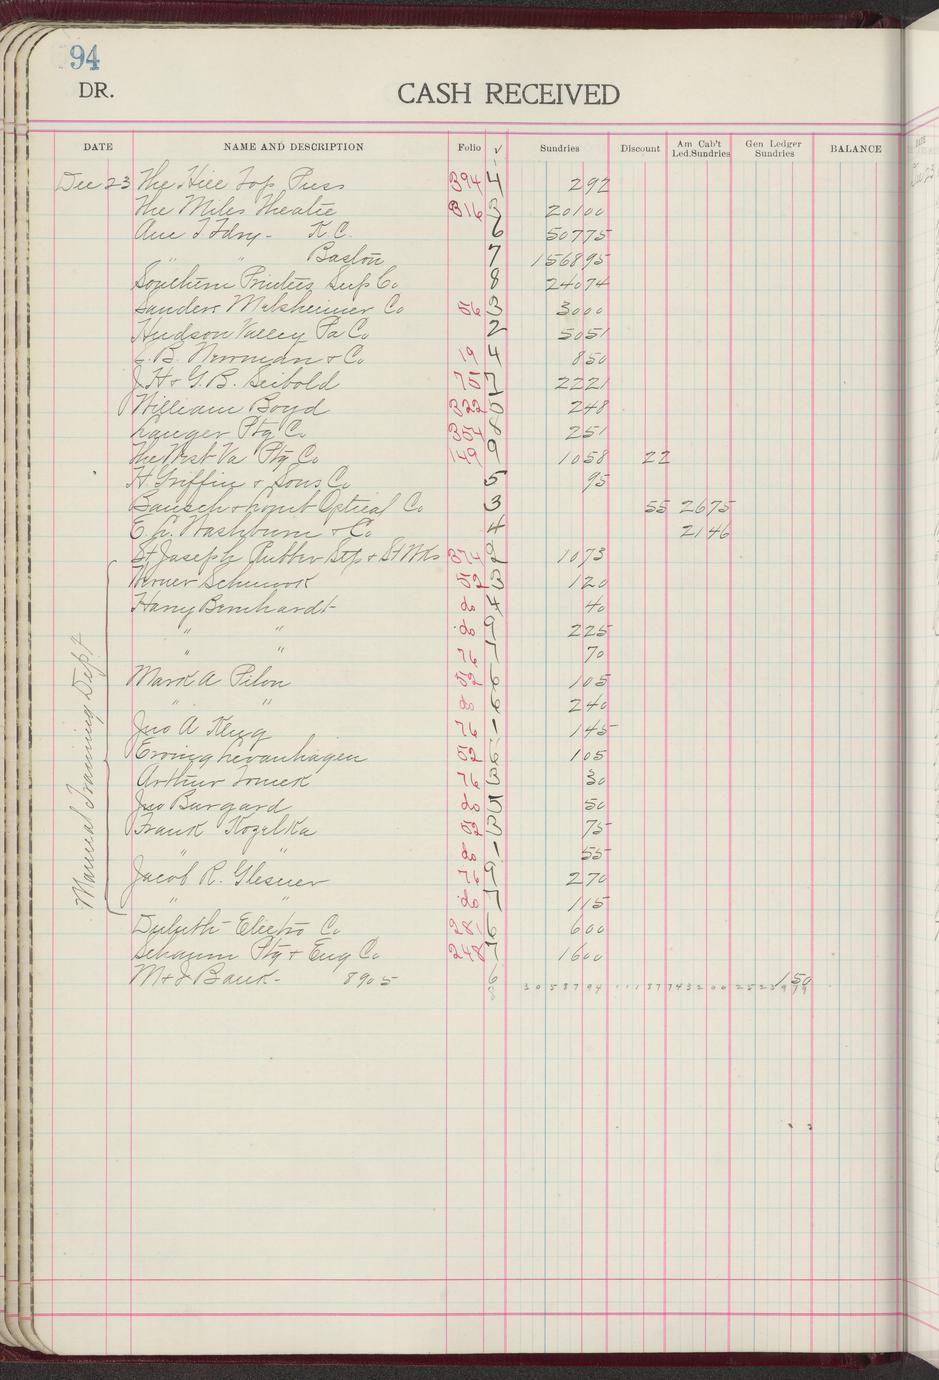 94
DR. CASH RECEIVED
DATE NAME AND DESCRIPTION Folio √ Sundries Discount Am Cab't Led. Sundries Gen Ledger Sundries BALANCE
Dec 23 The Hill Top Press 394 4 292
The Miles Theatre 316 3 20100
Am T Fdry - K.C. 6 50775
" " Boston 7 156895
Southern Printers Sup Co 8 24074
Sanders Malsheimer Co 56 3 3000
Hudson Valley Pa Co 2 5051
S.B. Newman & Co 19 4 850
J.H & G.B. Seibold 75 7 2221
William Boyd 322 5 248
Langer Ptg Co 354 8 251
The West Va Ptg Co 149 9 1058 22
H. Griffin & Sons Co 5 95
Bausch & Lomb Optical Co 3 55 2675
E. L. Washburn & Co 4 2146
St Joseph Rubber Stp & St Wks 374 2 1073
Manual Training Dept
Werner Schmook 52 3 120
Harry Bernhardt do 4 40
" " do 9 225
" " 76 1 70
Mark A Pilon 52 6 105
" " do 6 240
Jno A Klug 76 1 145
Erving Levanhagen 52 6 105
Arthur Tomek 76 3 30
Jno Burgard do 5 50
Frank Kozelka 52 3 75
" " do 1 55
Jacob R. Glesner 76 9 270
" " do 7 115
Duluth Electro Co 281 6 600
Schaum Ptg & Eng Co 248 7 1600
M & I Bank - 8905 6 150
3058794 11187 743200